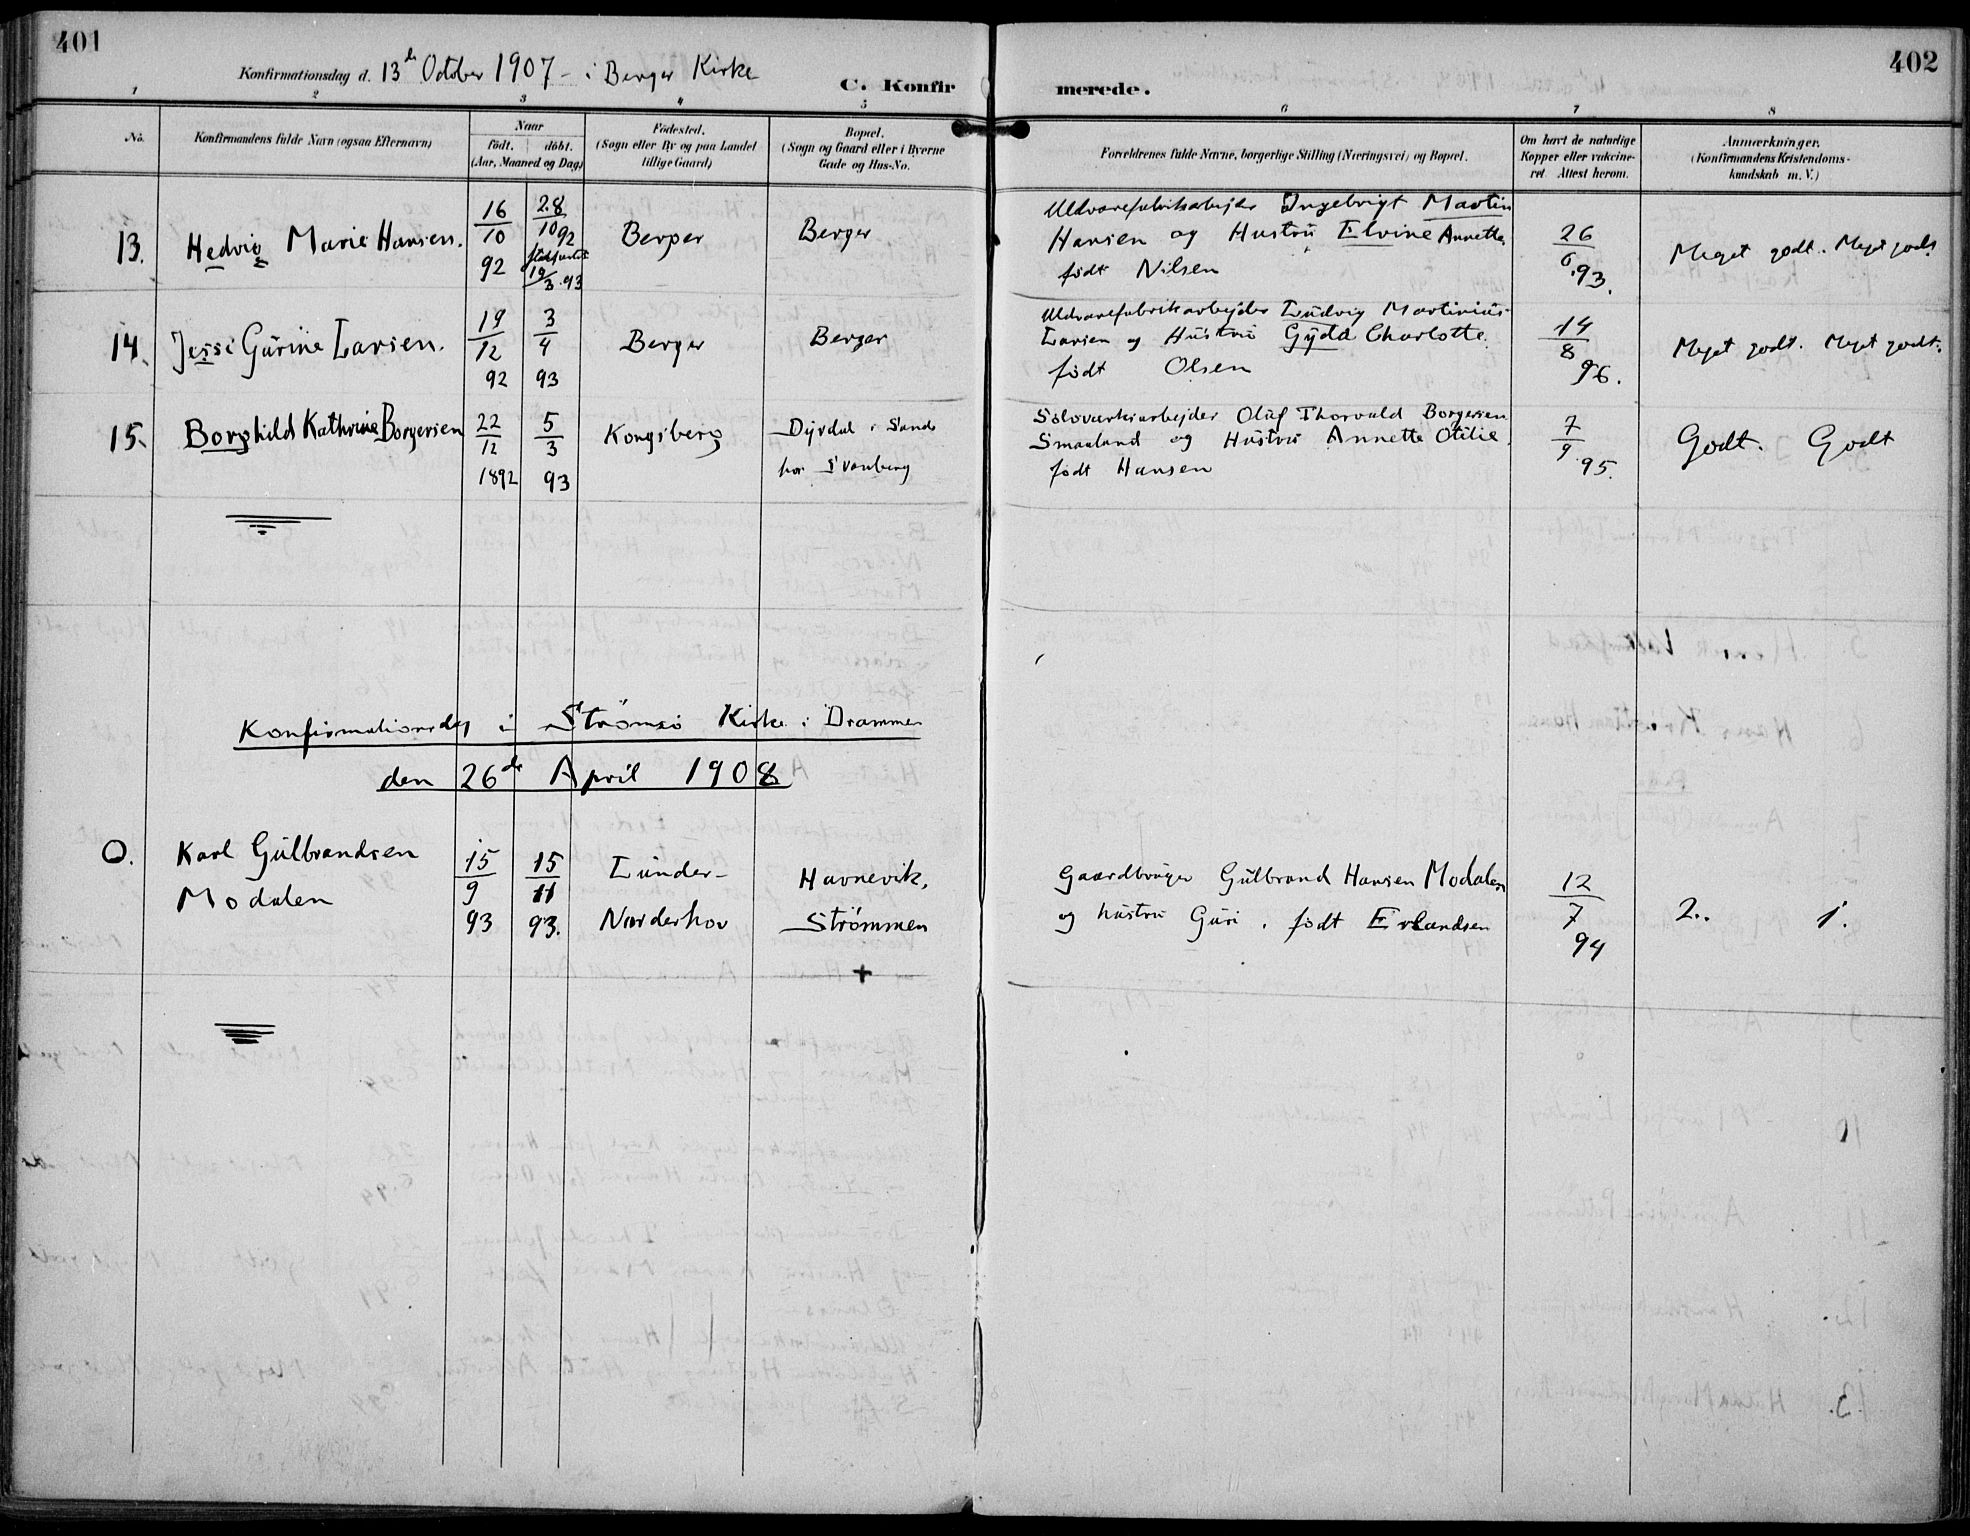 401
402
Konfirmationsdag d. 13de October 1907 - i Berger Kirke
C. Konfirmerede.
1 2 3 4 5 6 7 8
No.
Konfirmandens fulde Navn (ogsaa Efternavn)
Naar
födt. döbt.
(Aar, Maaned og Dag)
Födested.
(Sogn eller By og paa Landet
tillige Gaard)
Bopæl.
(Sogn og Gaard eller i Byerne
Gade og Hus-No.
Forældrenes fulde Navne, borgerlige Stilling (Næringsvei) og Bopæl.
Om havt de naturlige
Kopper eller vakcine-
ret. Attest herom.
Anmærkninger.
(Konfirmandens Kristendoms-
kundskab m. V.)
13. Hedvig Marie Hansen.
16/10 92
28/10 92
19/3 93
Berger
Berger
Uldvarefabrikarbejder Ingebrigt Martin
Hansen og Hustru Elvine Annette
født Nilsen
26/6 93.
Meget godt. Meget godt.
14. Jessi Gurine Larsen.
19/12 92
3/4 93
Berger
Berger
Uldvarefabrikarbejder Ludvig Martinius
Larsen og Hustru Gyda Charlotte
født Olsen
14/8 96.
Meget godt. Meget godt.
15. Borghild Kathrine Borgersen
22/12 1892
5/3 93
Kongsberg
Dyrdal i Sande
hos Svanberg
Sölvværksarbejder Oluf Thorvald Borgersen
Smaaland og Hustru Annette Otilie
født Hansen
7/9 95.
Godt. Godt
Konfirmationsdag i Strömsö Kirke i Drammen
den 26de April 1908
O. Karl Gulbrandsen
Modalen
15/9 93
15/11 93.
Lunder-
Norderhov
Havnevik,
Strömmen
+
Gaardbruger Gulbrand Hansen Modalen
og hustru Guri, født Erlandsen
12/7 94
2.. 1.